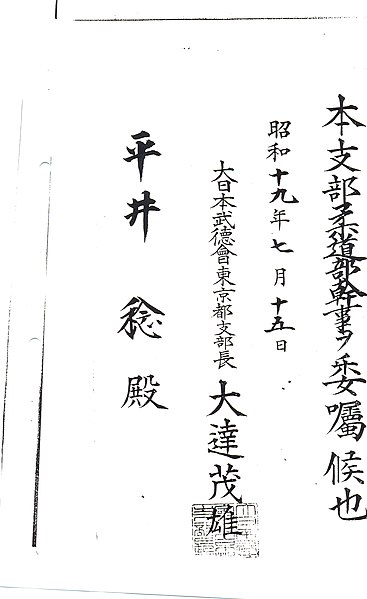 本支部柔道部幹事ヲ委囑候也
昭和十九年七月十五日
大日本武德會東京都支部長 大達茂雄
平井 稔 殿